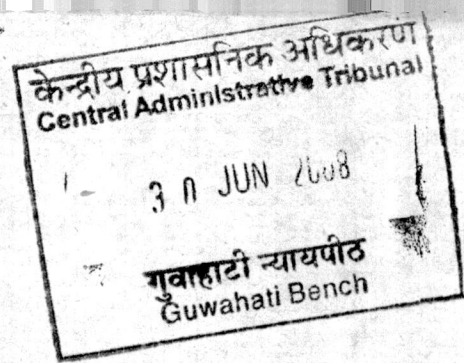 केन्द्रीय प्रशासनिक अधिकरण
Central Administrative Tribunal
30 JUN 2008
गुवाहाटी न्यायपीठ
Guwahati Bench